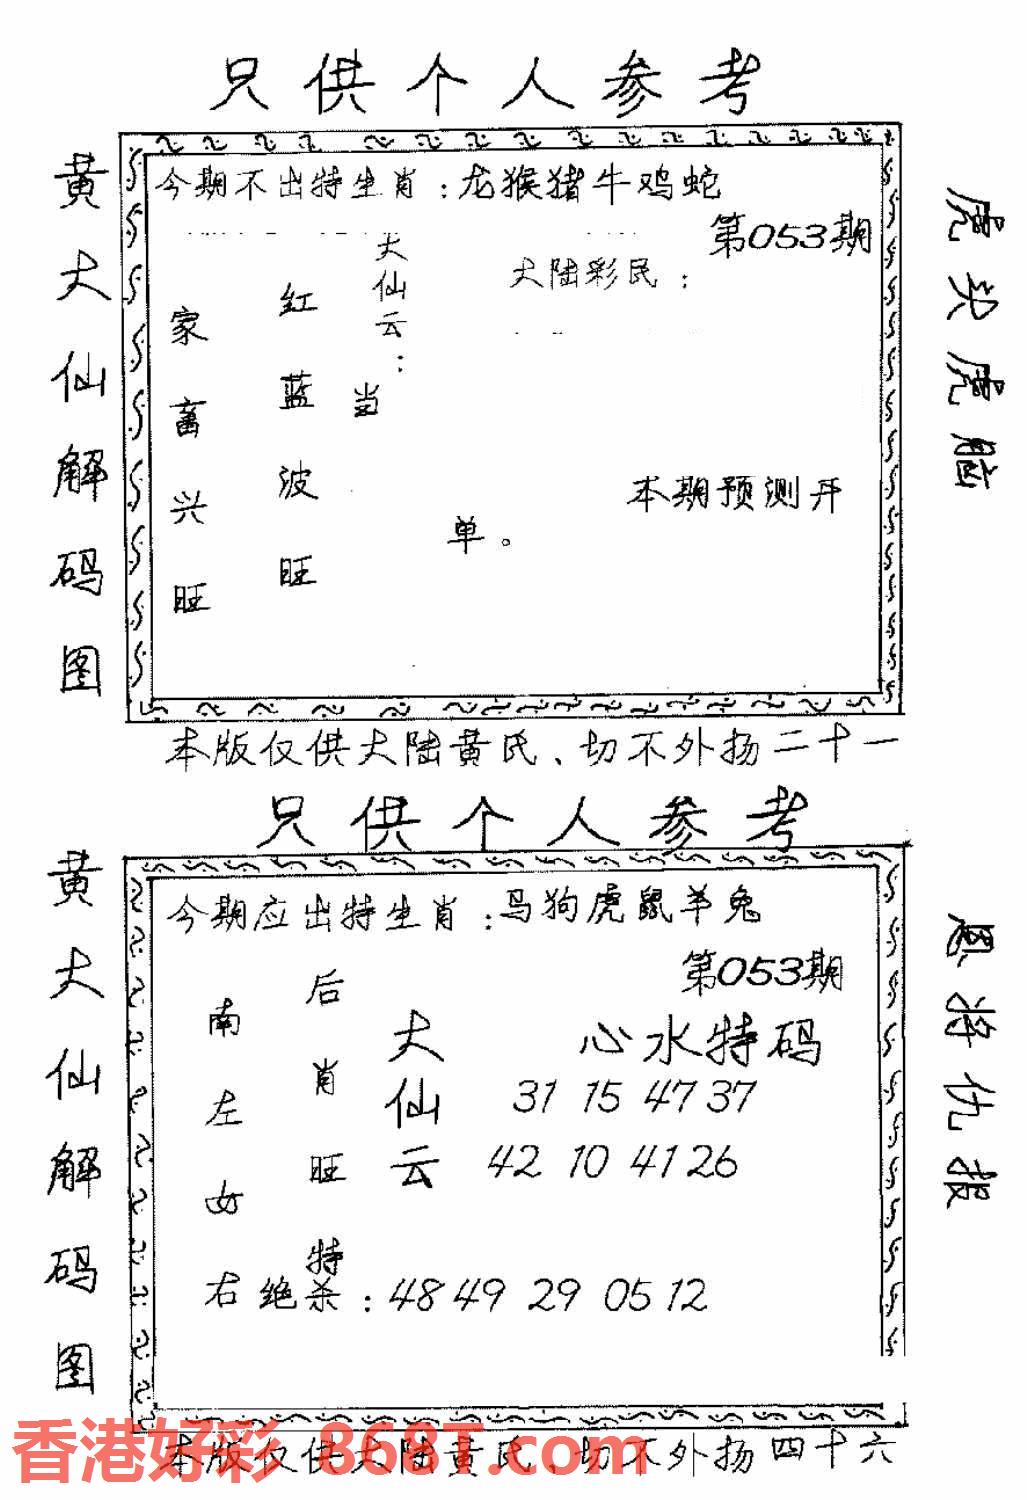 只供个人参考
黄大仙解码图
今期不出特生肖：龙猴猪牛鸡蛇
第053期
大仙云：
大陆彩民：
家畜兴旺
红蓝波旺
当
本期预测开
单。
虎头虎脑
本版仅供大陆黄氏、切不外扬二十一
只供个人参考
黄大仙解码图
今期应出特生肖：马狗虎鼠羊兔
第053期
南左女右
后肖旺特
大仙云
心水特码
31 15 47 37
42 10 41 26
绝杀：48 49 29 05 12
恩将仇报
本版仅供大陆黄氏、切不外扬四十六
香港好彩 868T.com